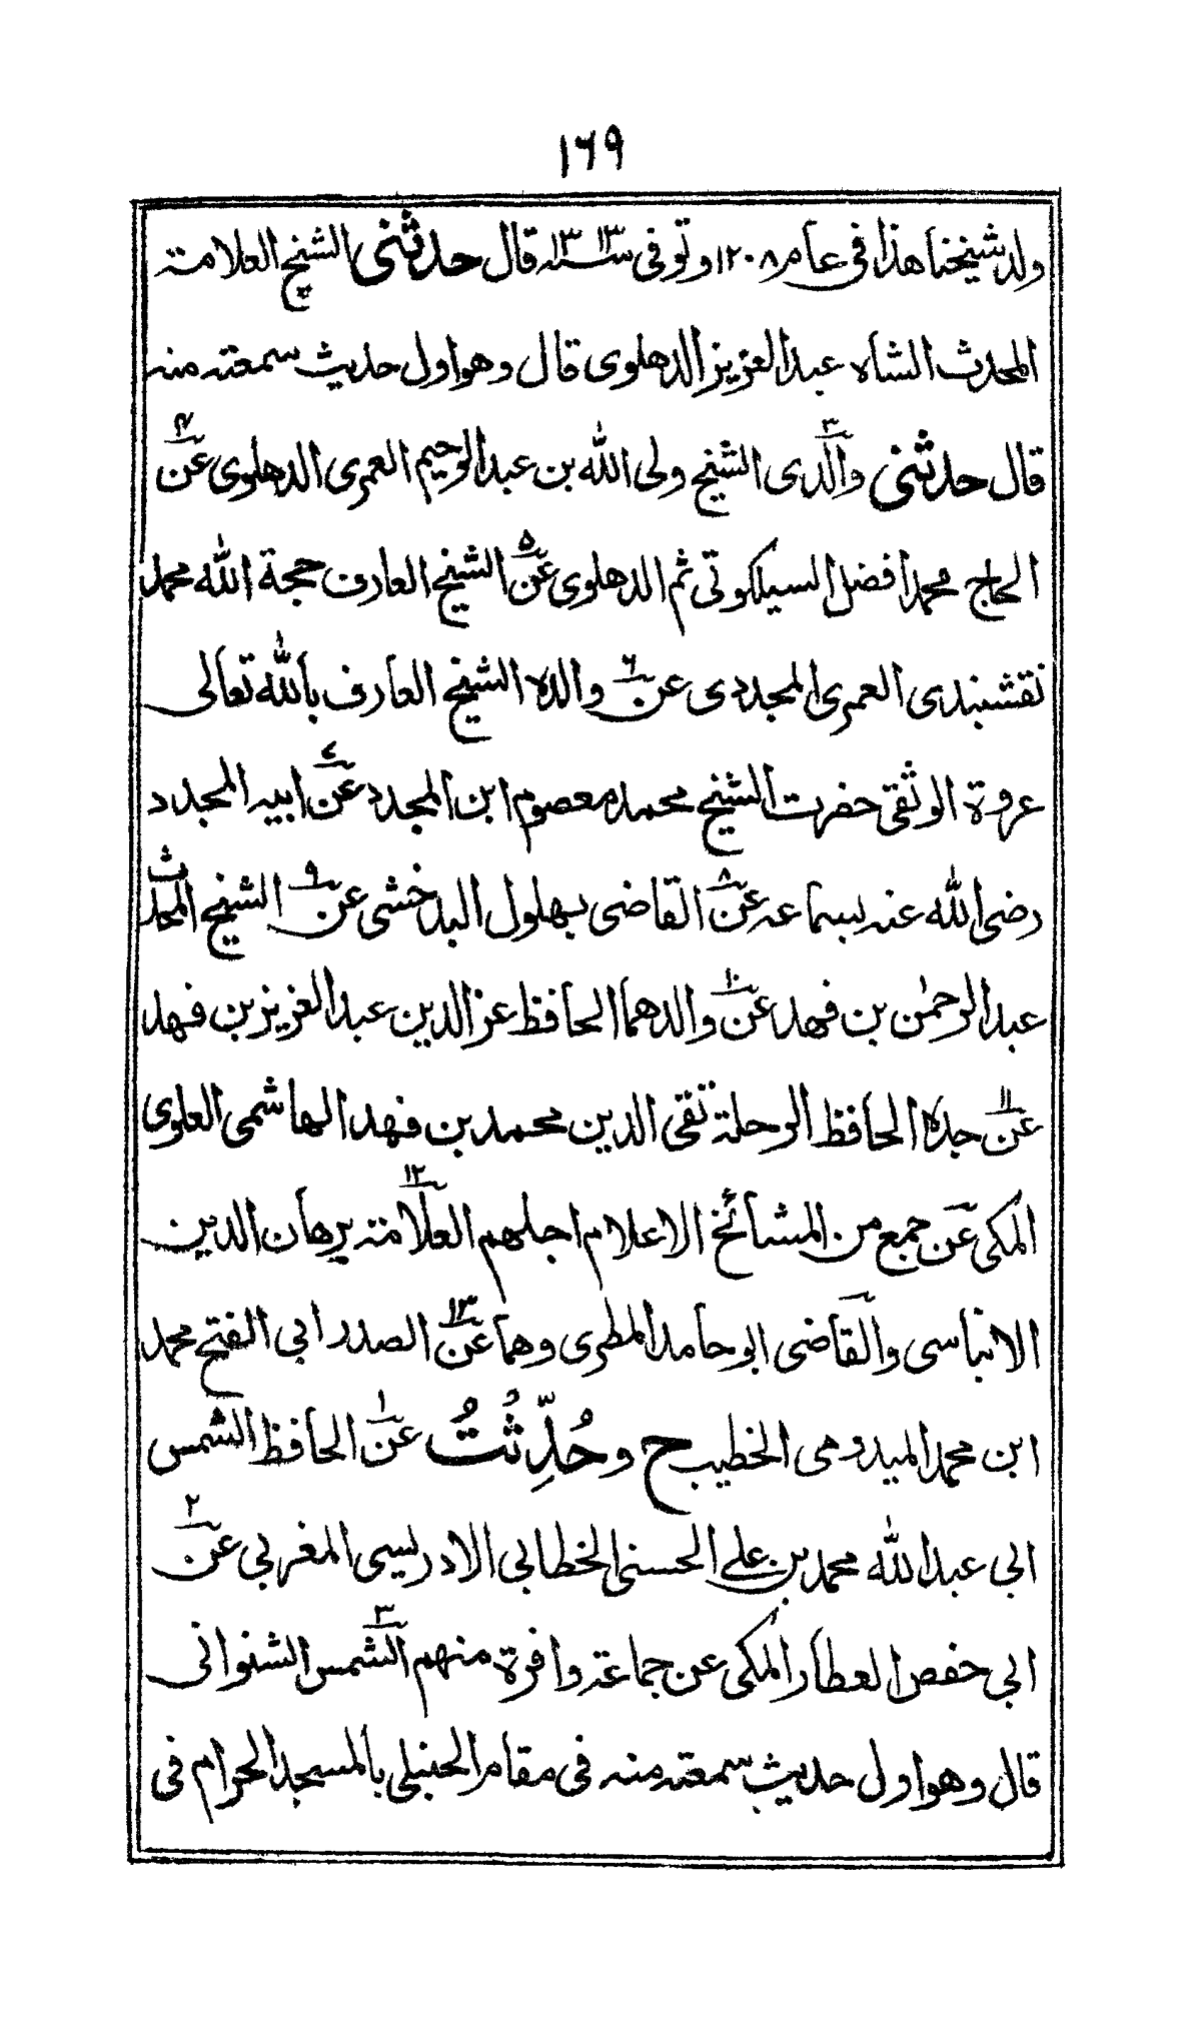 ١٦٩
ولد شيخنا هذا في عام ١٢٠٨ وتوفى سنة ١٣١٣ قال حدثنى الشيخ العلامة
المحدث الشاه عبد العزيز الدهلوى قال وهو اول حديث سمعته منه
قال حدثنى والدى٣ الشيخ ولى الله بن عبد الرحيم العمرى الدهلوى عن٤
الحاج محمد افضل السيلكوتى ثم الدهلوى عن٥ الشيخ العارف حجة الله محمد
نقشبندى العمرى المجددى عن٦ والده الشيخ العارف بالله تعالى
عروة الوثقى حضرت الشيخ محمد معصوم ابن المجدد عن٧ ابيه المجدد
رضى الله عنه بسماعه عن٨ القاضى بهلول البدخشى عن٩ الشيخ المحدث
عبد الرحمٰن بن فهد عن١٠ والدهما الحافظ عز الدين عبد العزيز بن فهد
عن١١ جده الحافظ الرحلة تقى الدين محمد بن فهد الهاشمى العلوى
المكى عن جمع من المشائخ الاعلام اجلهم العلامة١٢ برهان الدين
الانباسى والقاضى ابو حامد المطرى وهما عن١٣ الصدر ابى الفتح محمد
ابن محمد الميدومى الخطيب ح وحُدِّثْتُ عن١ الحافظ الشمس
ابى عبد الله محمد بن على الحسنى الخطابى الادريسى المغربى عن٢
ابى حفص العطار المكى عن جماعة وافرة منهم الشمس٣ الشنوانى
قال وهو اول حديث سمعته منه فى مقام الحنبلى بالمسجد الحرام فى